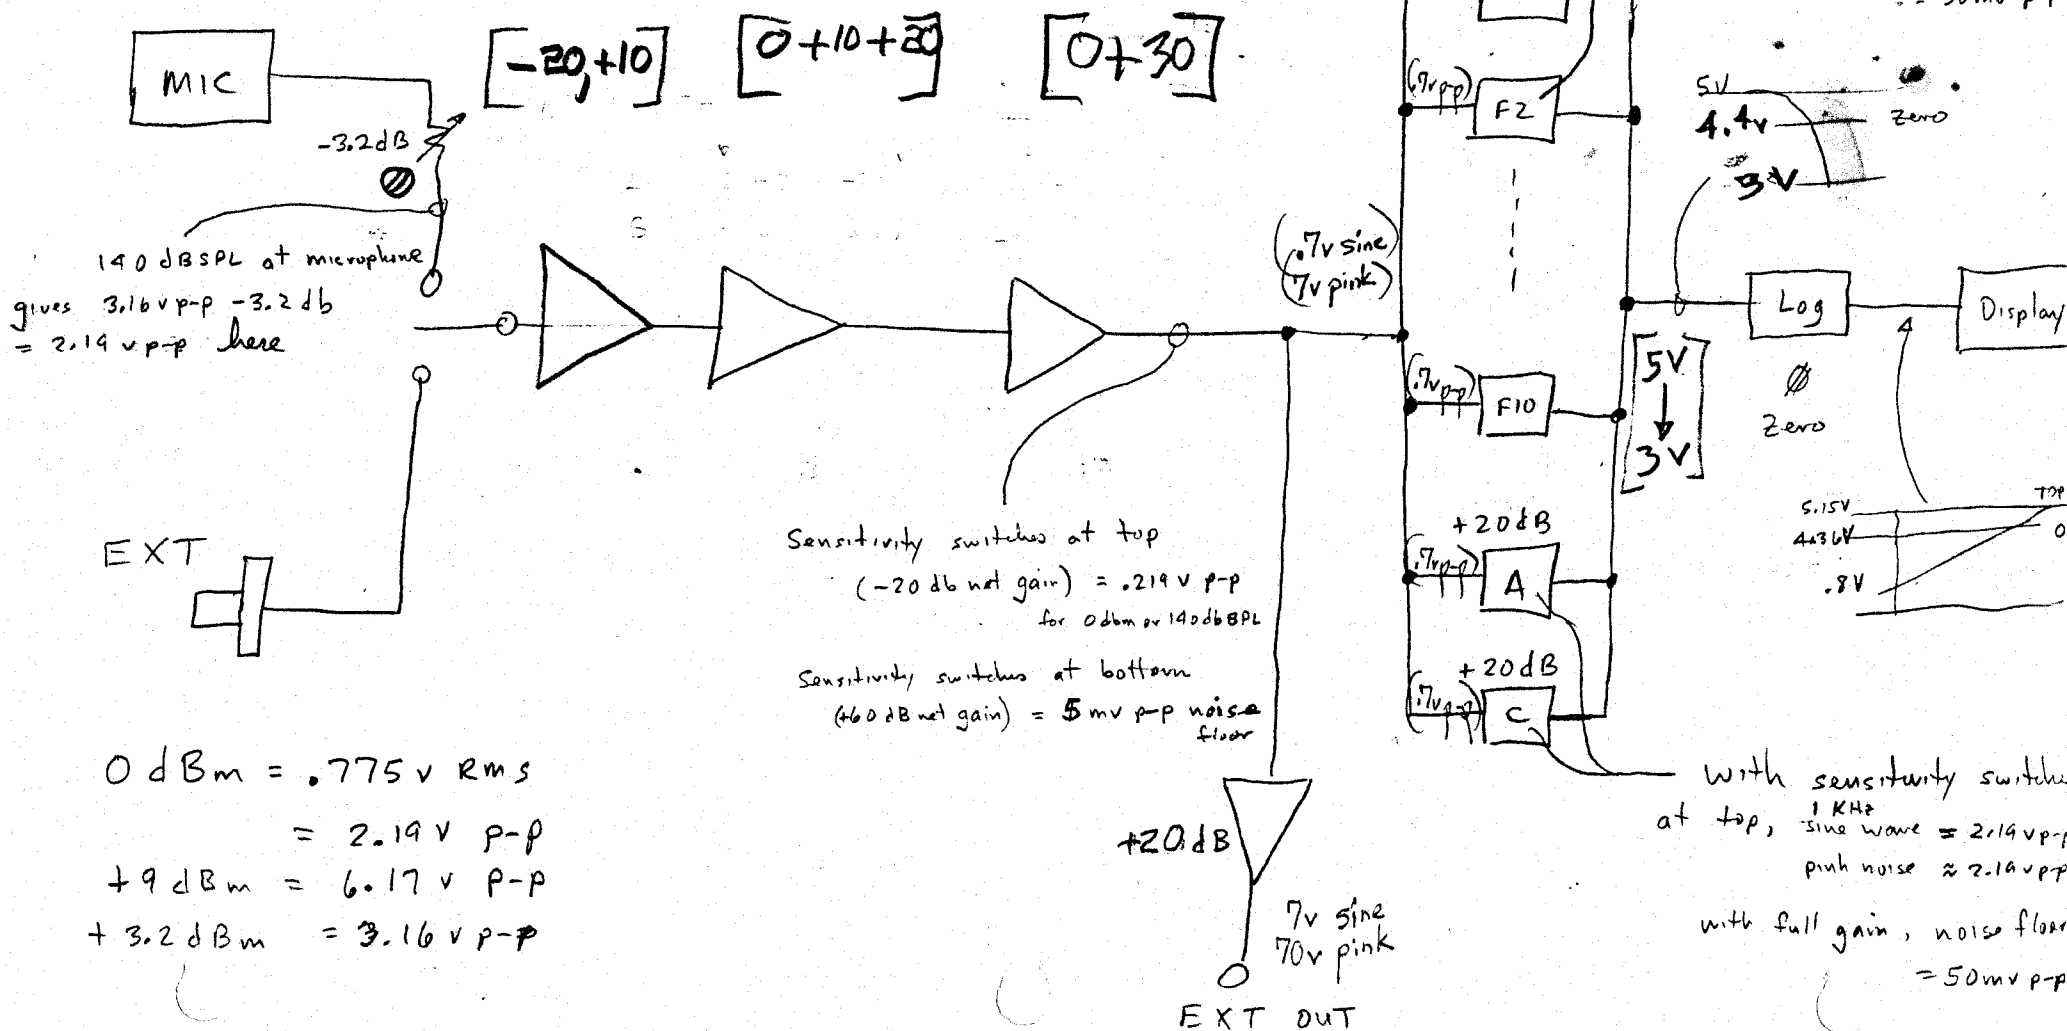 MIC
[-20,+10]
[0+10+20]
[0+30]
-3.2dB
140 dBSPL at microphone
gives 3.16 v p-p -3.2 db
= 2.19 v p-p here
EXT
0 dBm = .775 v Rms
= 2.19 v p-p
+9 dBm = 6.17 v p-p
+3.2 dBm = 3.16 v p-p
Sensitivity switches at top
(-20 db net gain) = .219 v p-p
for 0dbm or 140dbSPL
Sensitivity switches at bottom
(+60 dB net gain) = 5 mv p-p noise
floor
+20dB
7v sine
70v pink
EXT OUT
(.7v sine)
(7v pink)
(.7v p-p)
F2
(.7v p-p)
F10
+20dB
(.7v p-p)
A
+20dB
(.7v p-p)
C
5V
4.4v
3V
Zero
[5V
3V]
Log
Ø
Zero
Display
TOP
5.15V
4.36V
0
.8V
with sensitivity switche
at top, 1 KHz
sine wave = 2.19 v p-p
pink noise ≈ 2.19 v p-p
with full gain, noise floor
= 50mv p-p